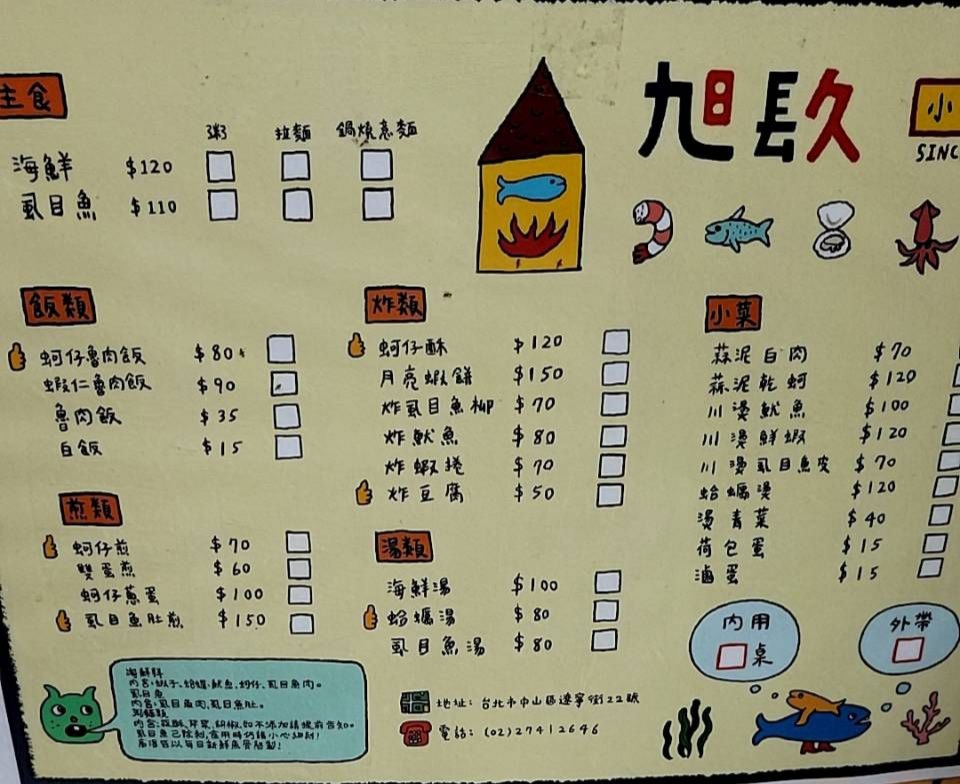 主食
粥 拉麵 鍋燒意麵
海鮮 $120
虱目魚 $110
旭長久
小
SINC
飯類
蚵仔魯肉飯 $80
蝦仁魯肉飯 $90
魯肉飯 $35
白飯 $15
煎類
蚵仔煎 $70
雙蛋煎 $60
蚵仔蔥蛋 $100
虱目魚肚煎 $150
炸類
蚵仔酥 $120
月亮蝦餅 $150
炸虱目魚柳 $70
炸魷魚 $80
炸蝦捲 $70
炸豆腐 $50
湯類
海鮮湯 $100
蛤蠣湯 $80
虱目魚湯 $80
小菜
蒜泥白肉 $70
蒜泥乾蚵 $120
川燙魷魚 $100
川燙鮮蝦 $120
川燙虱目魚皮 $70
蛤蠣燙 $120
燙青菜 $40
荷包蛋 $15
滷蛋 $15
內用
桌
外帶
海鮮類
內容:蝦子、蛤蠣、魷魚、蚵仔、虱目魚肉。
虱目魚
內容:虱目魚肉,虱目魚肚。
內容:蒜酥、芹菜、胡椒,如不添加請提前告知。
虱目魚已除刺,食用時仍請小心細刺!
高湯皆以每日新鮮魚骨熬製!
地址:台北市中山區遼寧街22號
電話:(02)27412646